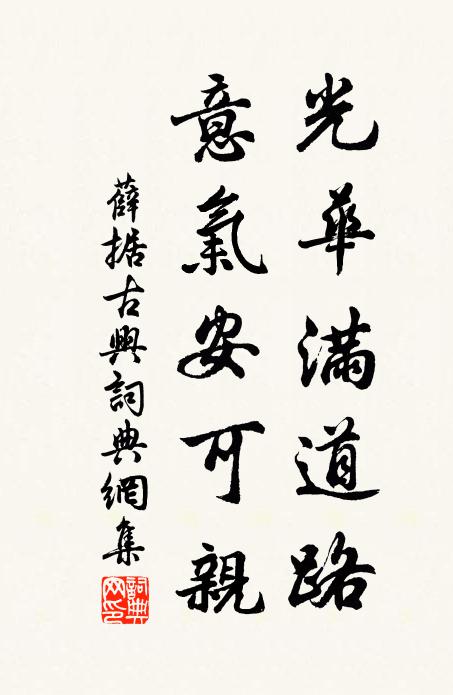 光華滿道路
意氣安可親
薛据古興詞典網集
詞典網印